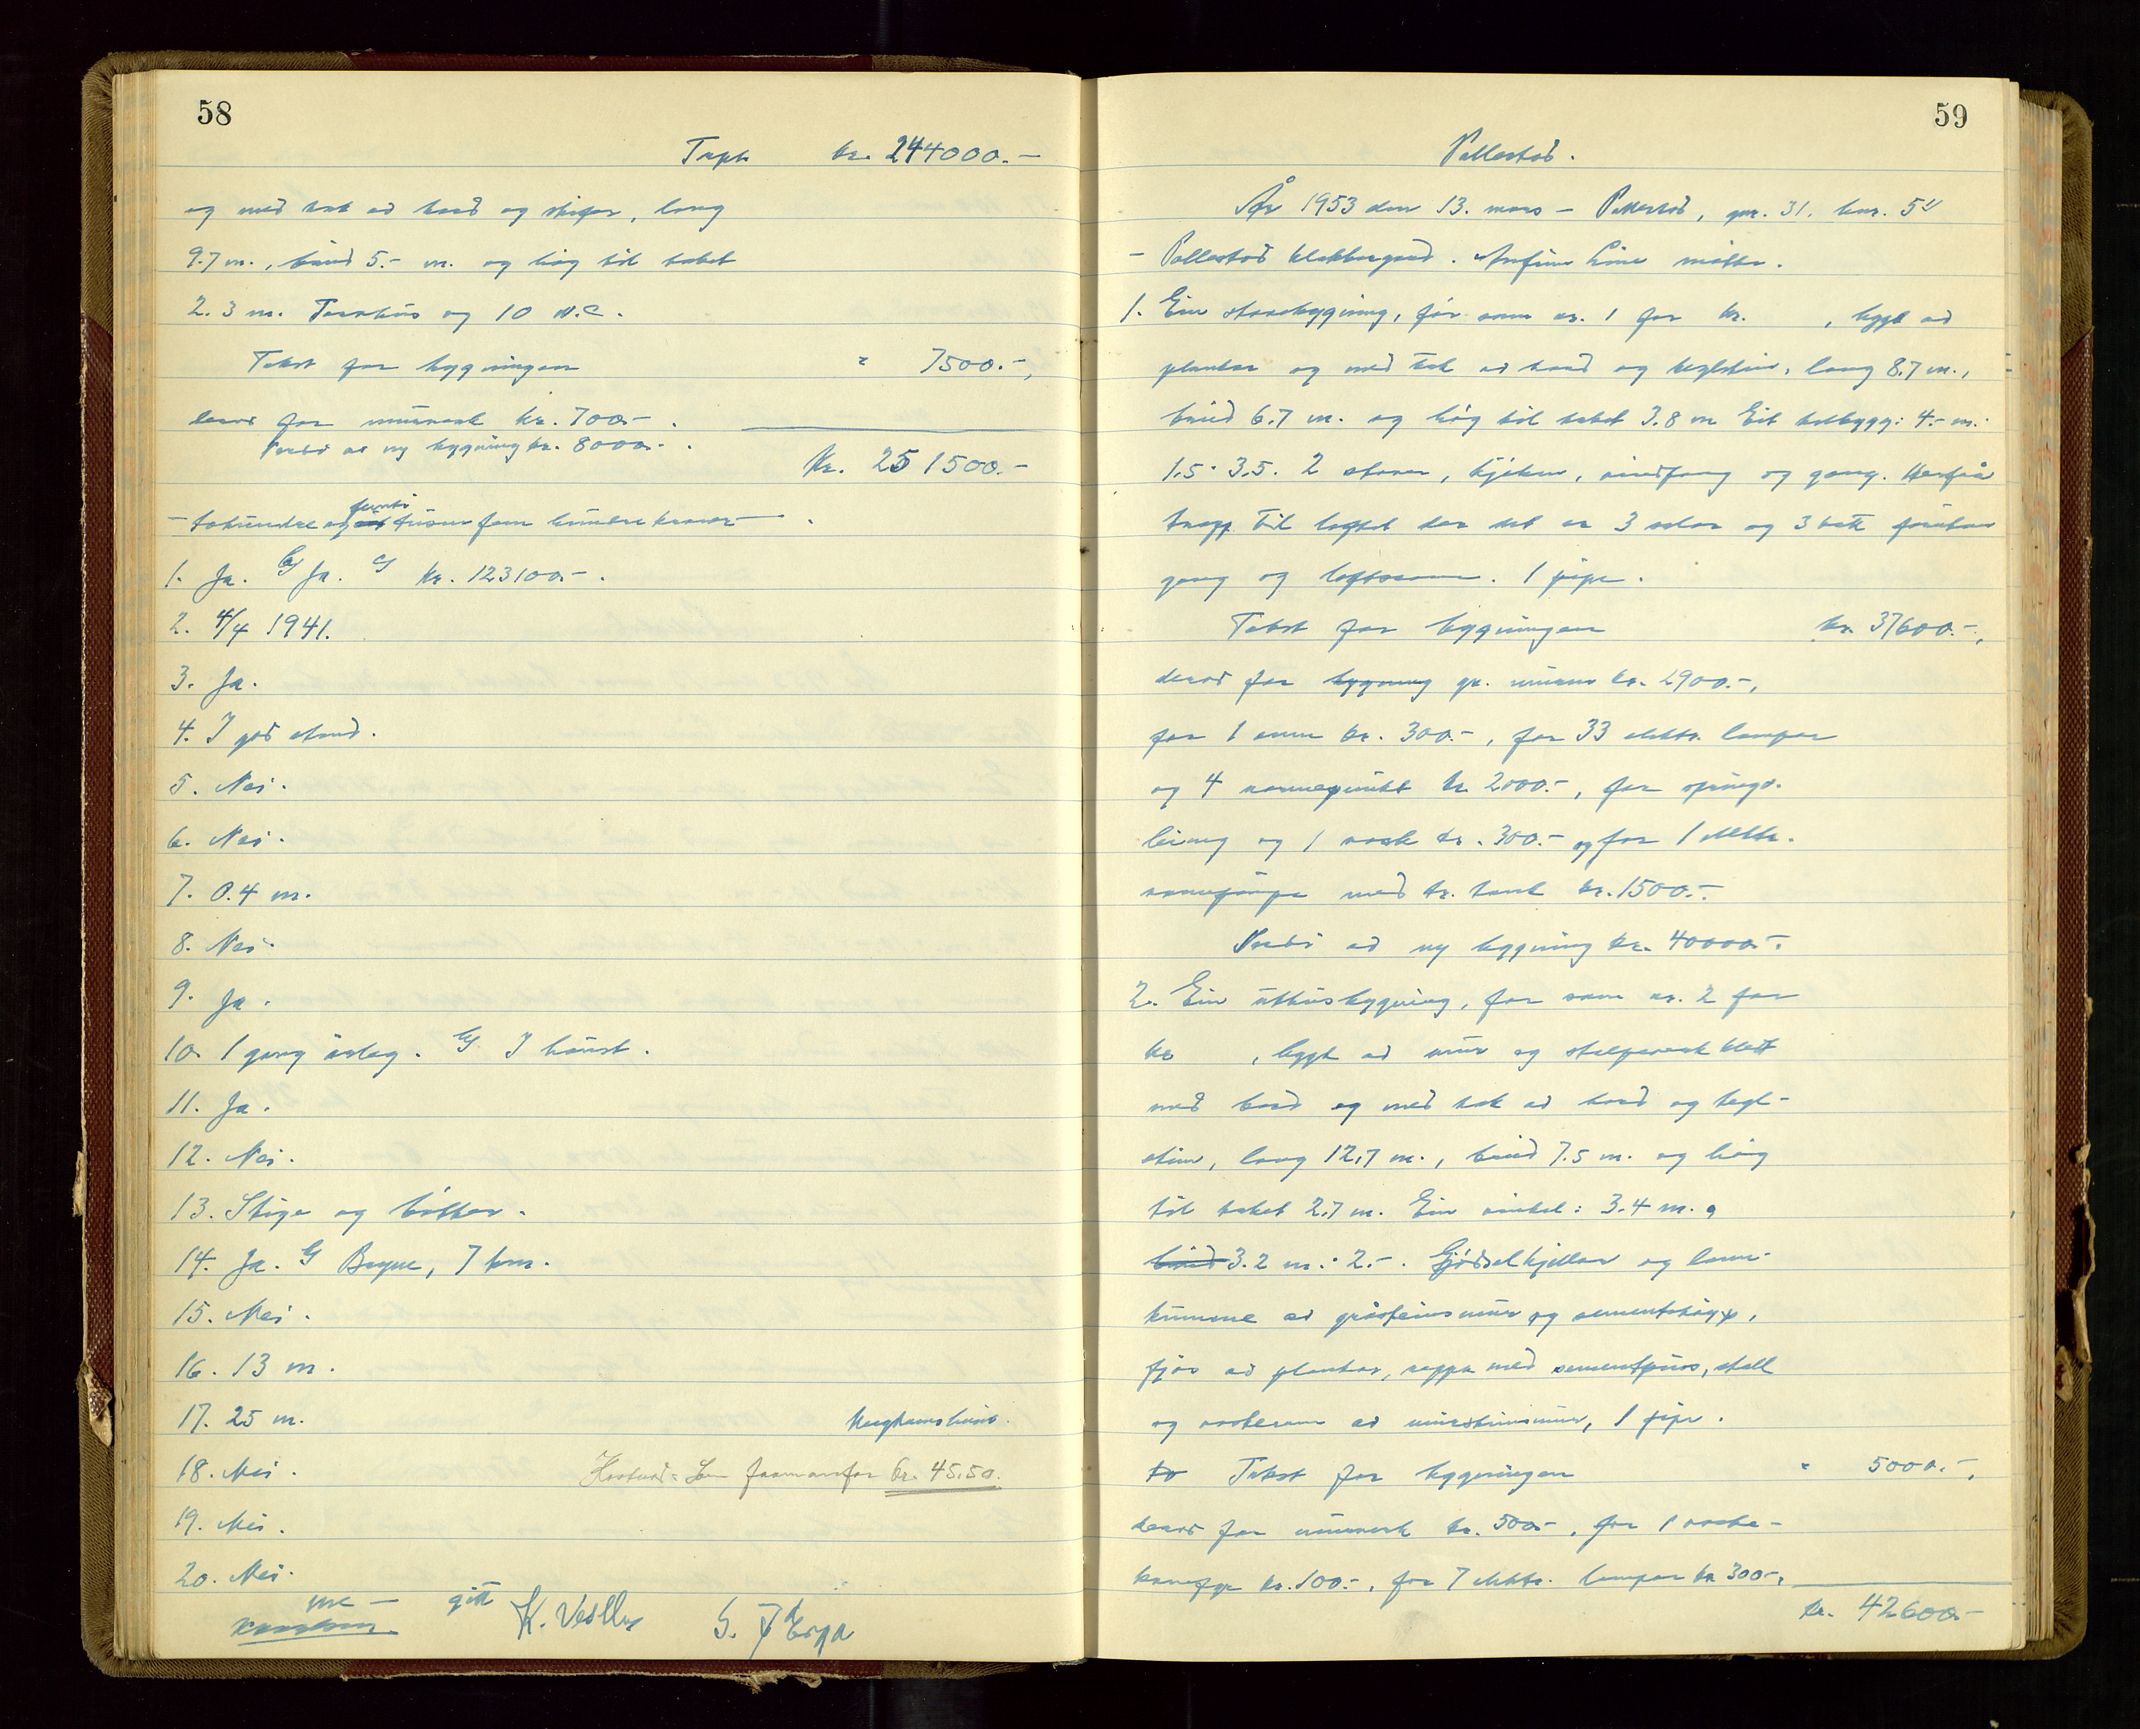 58
kr. 244000.-
og med tak av bord og skifer, lang
9.7 m., breid 5.- m. og høg til taket
2.3 m. og 10 W.C.
Takst for bygningen " 7500.-,
herav for murverk kr. 700.-.
Verdi av ny bygning kr. 8000.-.
Kr. 251500.-
- tohundre og femti tusen fem hundre kroner -.
1. Ja. Ja. kr. 123100.-.
2. 4/4 1941.
3. Ja.
4. I god stand.
5. Nei.
6. Nei.
7. 0.4 m.
8. Nei.
9. Ja.
10. 1 gong årleg. I haust.
11. Ja.
12. Nei.
13. Stige og bøtter.
14. Ja. Bryne, 7 km.
15. Nei.
16. 13 m.
17. 25 m.
18. Nei. kr. 45.50.
19. Nei.
20. Nei.
K. Vestly
59
År 1953 den 13. mars - gnr. 31, bnr. 5
møtte.
1. Ein stovebygning, før som nr. 1 for kr. , bygt av
plankar og med tak av bord og teglstein, lang 8.7 m.,
breid 6.7 m. og høg til taket 3.8 m Eit tilbygg: 4.- m.
1.5 · 3.5. 2 stover, kjøken, vindfang og gang. Herfrå
trapp til loftet der det er 3 soler og 3 foruten
gang og loftsrom. 1 pipe.
Takst for bygningen kr. 37600.-,
herav for bygning gr. muren kr. 2900.-,
for 1 omn kr. 300.-, for 33 elektr. lamper
og 4 varmepunkt kr 2000.-, for springv.
leining og 1 vask kr. 300.- og for 1 elektr.
med tr. tank kr. 1500.-.
Verdi av ny bygning kr. 40000.-.
2. Ein uthusbygning, før som nr. 2 for
kr , bygt av mur og stolpeverk kledt
med bord og med tak av bord og tegl-
stein, lang 12,7 m., breid 7.5 m. og høg
til taket 2,7 m. Ein vinkel: 3.4 m.
breid 3.2 m. · 2.-. Gjødselkjellar og land-
kumme av gråsteinsmur og sementstøyp,
fjøs av plankar, med sementpuss, stall
og vaskerom av mursteinsmur, 1 pipe.
Takst for bygningen " 5000.-,
herav for murverk kr. 500.-, for 1 vaske-
kr. 100.-, for 7 elektr. lamper kr 300.-,
kr. 42600.-